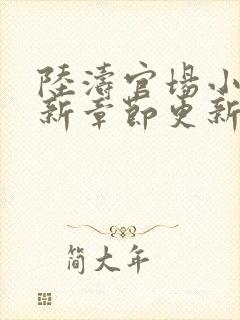 陸濤官場小
新章節更新
簡大年